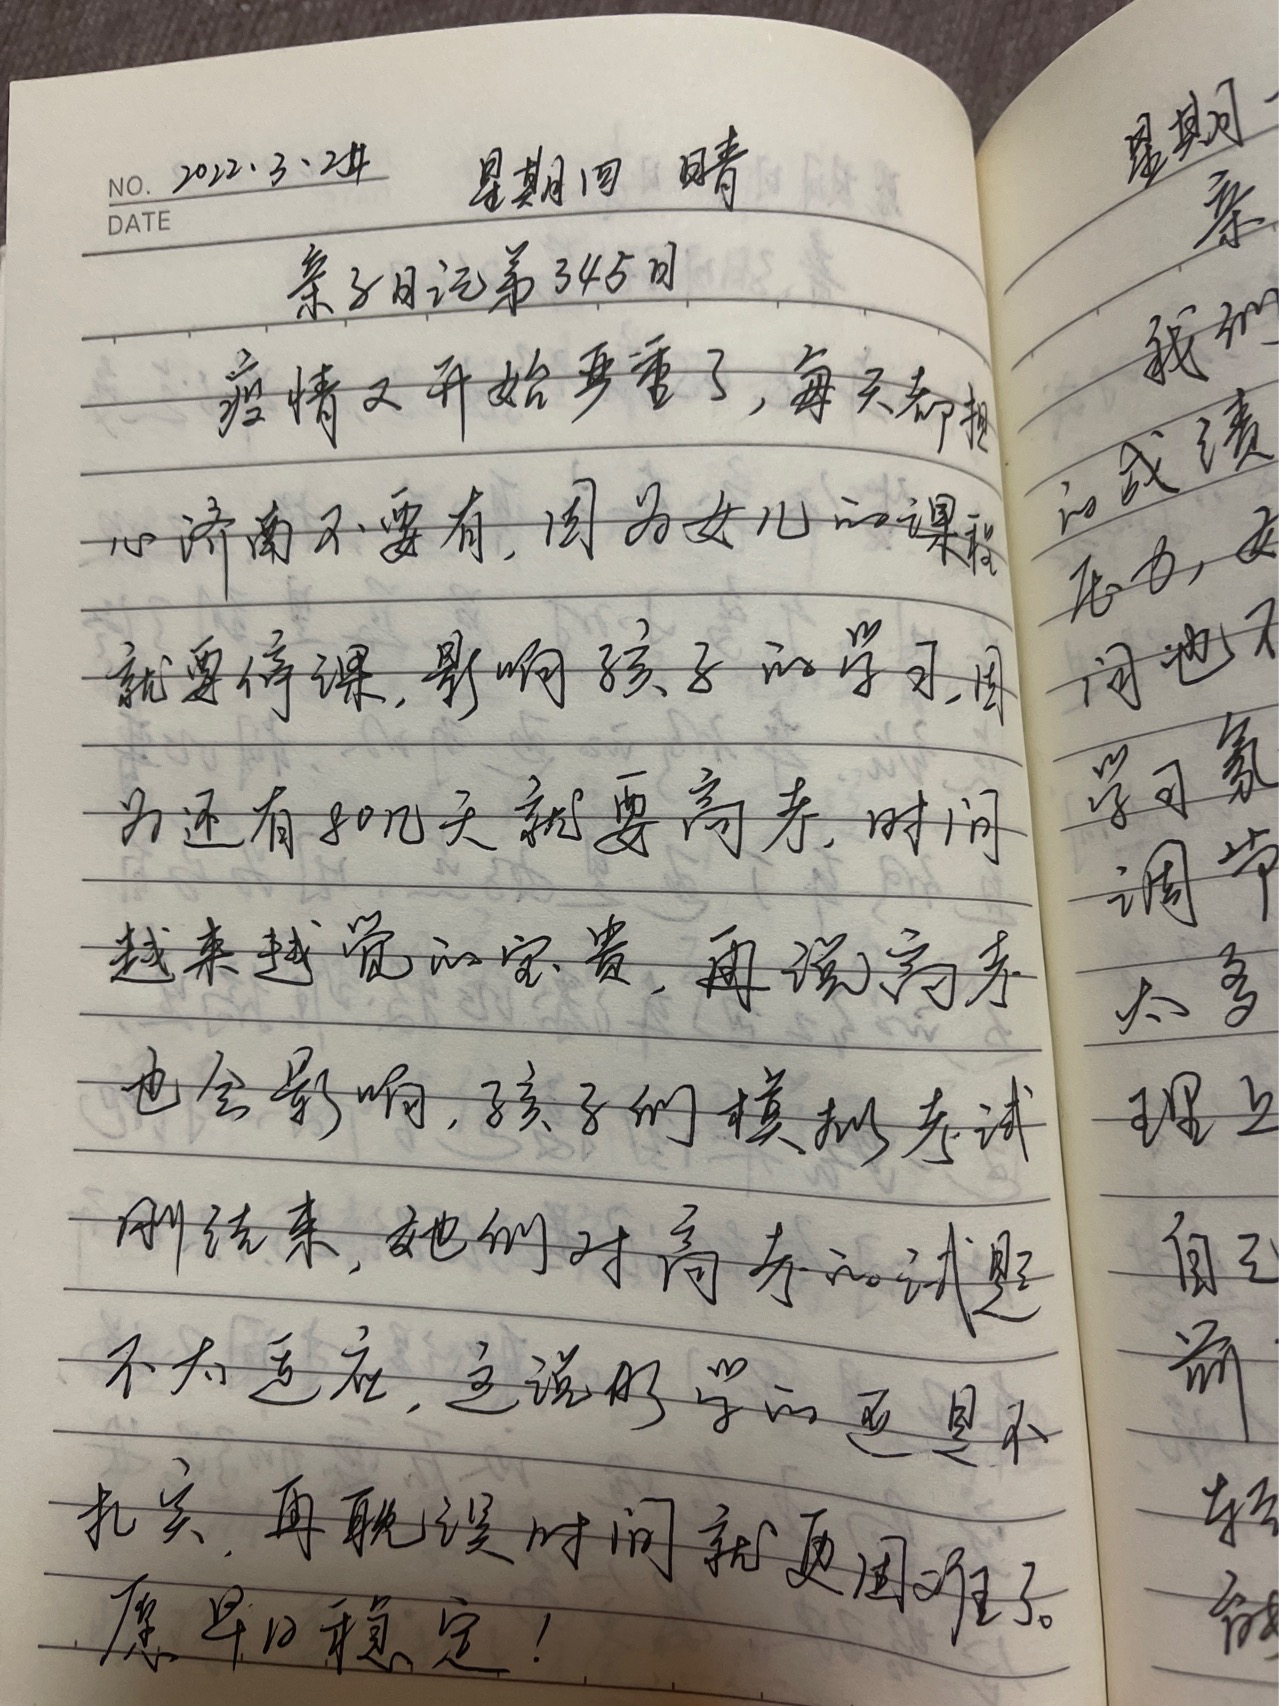 NO. 2022.3.24 星期四 晴
DATE
亲子日记第345日
疫情又开始严重了,每天都担
心济南不要有,因为女儿的课程
就要停课,影响孩子的学习,因
为还有80几天就要高考,时间
越来越觉的宝贵,再说高考
也会影响,孩子们模拟考试
刚结束,她们对高考的试题
不太适应,这说明学的还是不
扎实,再耽误时间就更困难了。
愿早日稳定!
星期一
亲
我们
的成绩
压力,女
间也不
学习氛
调节
太多
理上
自己
前
轻